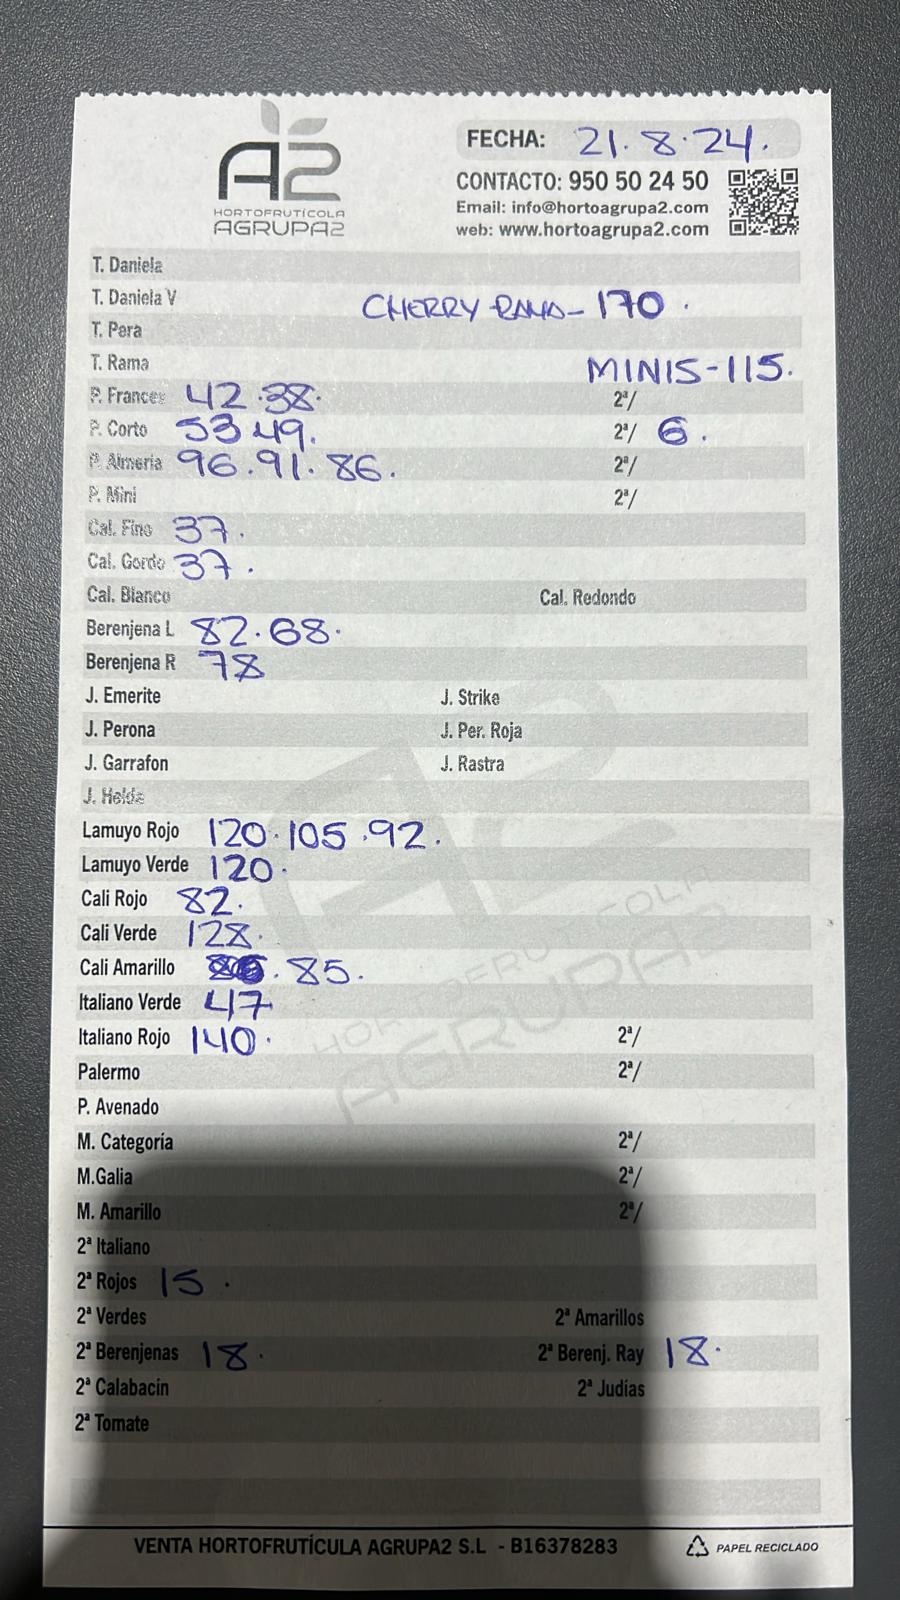 A2
HORTOFRUTÍCOLA
AGRUPA2
FECHA: 21.8.24.
CONTACTO: 950 50 24 50
Email: info@hortoagrupa2.com
web: www.hortoagrupa2.com
T. Daniela
T. Daniela V CHERRY RAMA- 170.
T. Pera
T. Rama MINIS-115.
P. Frances 42.38. 2ª/
P. Corto 53 49. 2ª/ 6.
P. Almeria 96.91.86. 2ª/
P. Mini 2ª/
Cal. Fino 37.
Cal. Gordo 37.
Cal. Blanco Cal. Redondo
Berenjena L 82.68.
Berenjena R 78
J. Emerite J. Strike
J. Perona J. Per. Roja
J. Garrafon J. Rastra
J. Helda
Lamuyo Rojo 120.105.92.
Lamuyo Verde 120.
Cali Rojo 82.
Cali Verde 128.
Cali Amarillo . 85.
Italiano Verde 47
Italiano Rojo 140. 2ª/
Palermo 2ª/
P. Avenado
M. Categoría 2ª/
M.Galia 2ª/
M. Amarillo 2ª/
2ª Italiano
2ª Rojos 15.
2ª Verdes 2ª Amarillos
2ª Berenjenas 18. 2ª Berenj. Ray 18.
2ª Calabacín 2ª Judías
2ª Tomate
HORTOFRUTÍCOLA
AGRUPA2
VENTA HORTOFRUTÍCULA AGRUPA2 S.L - B16378283 PAPEL RECICLADO